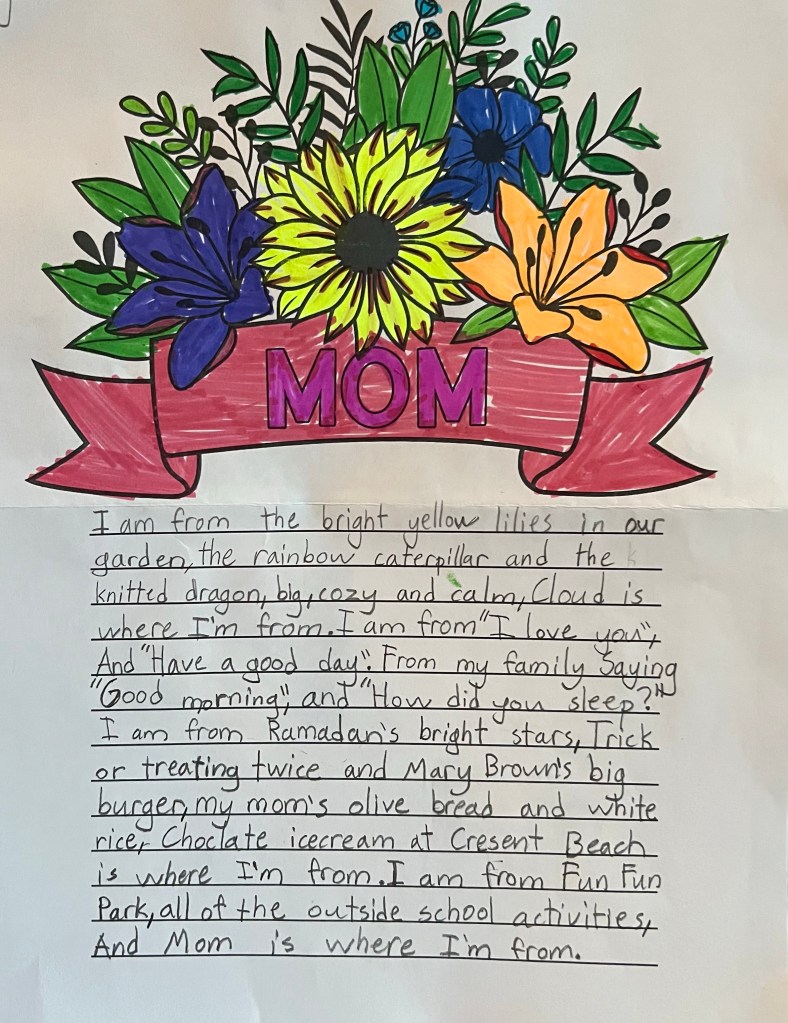 MOM
I am from the bright yellow lilies in our
garden, the rainbow caterpillar and the
knitted dragon, big, cozy and calm, Cloud is
where I'm from. I am from "I love you",
And "Have a good day". From my family Saying
"Good morning", and "How did you sleep?"
I am from Ramadan's bright stars, Trick
or treating twice and Mary Brown's big
burger, my mom's olive bread and white
rice, Choclate icecream at Cresent Beach
is where I'm from. I am from Fun Fun
Park, all of the outside school activities,
And Mom is where I'm from.